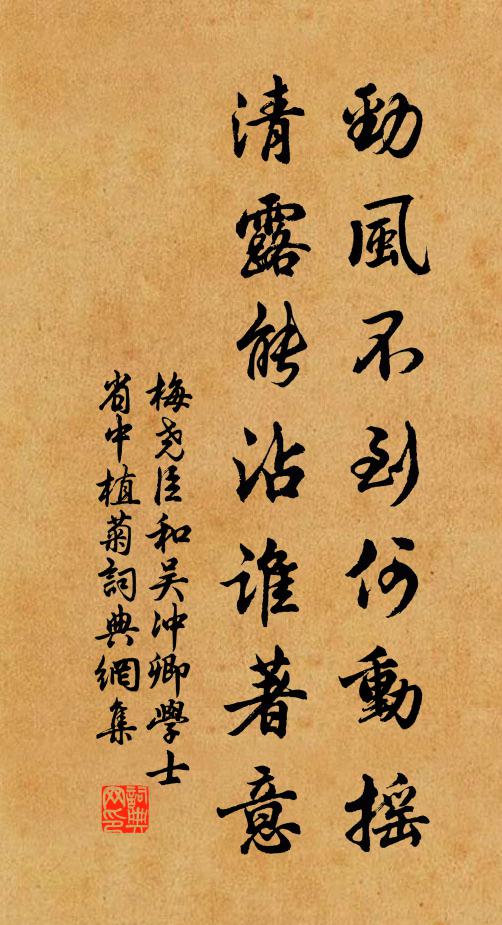 勁風不到何動搖
清露能沾誰著意
梅堯臣和吴冲卿學士
省中植菊詞典網集
詞典
网印